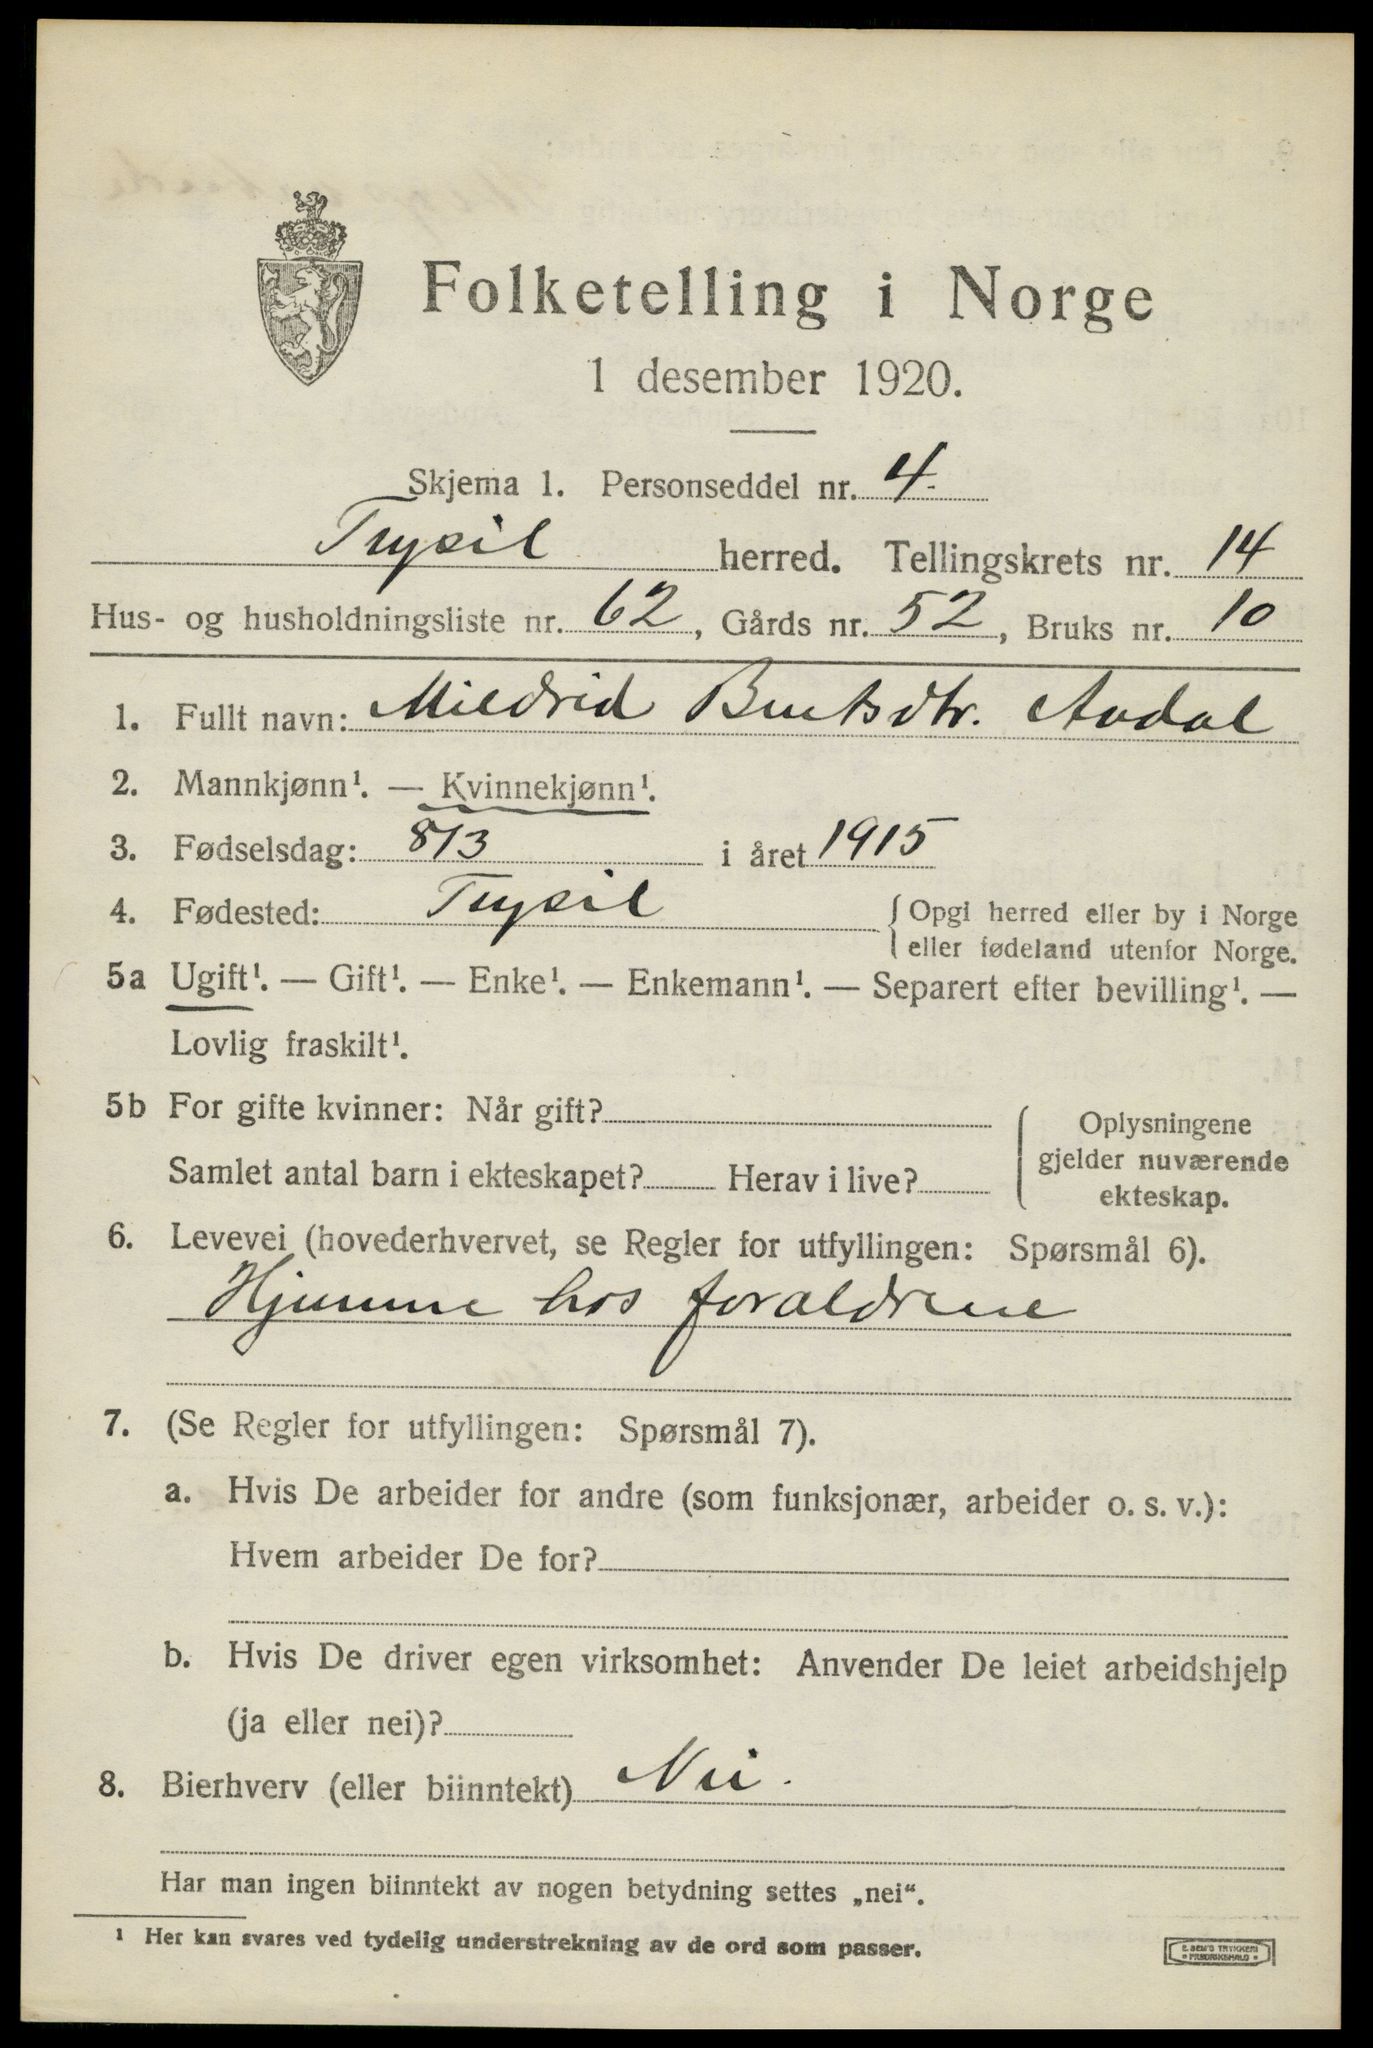 Folketelling i Norge
1 desember 1920.
Skjema 1. Personseddel nr. 4.
Trysil herred. Tellingskrets nr. 14
Hus- og husholdningsliste nr. 62, Gårds nr. 52, Bruks nr. 10
1. Fullt navn: Mildrid Berntsdtr. Avdal
2. Mannkjønn¹. — Kvinnekjønn¹.
3. Fødselsdag: 8/3 i året 1915
4. Fødested: Trysil {Opgi herred eller by i Norge
eller fødeland utenfor Norge.
5a Ugift¹. — Gift¹. — Enke¹. — Enkemann¹. — Separert efter bevilling¹. —
Lovlig fraskilt¹.
5b For gifte kvinner: Når gift?
Samlet antal barn i ekteskapet? Herav i live?
Oplysningene
gjelder nuværende
ekteskap.
6. Levevei (hovederhvervet, se Regler for utfyllingen: Spørsmål 6).
Hjemme hos foraldrene
7. (Se Regler for utfyllingen: Spørsmål 7).
a. Hvis De arbeider for andre (som funksjonær, arbeider o. s. v.):
Hvem arbeider De for?
b. Hvis De driver egen virksomhet: Anvender De leiet arbeidshjelp
(ja eller nei)?
8. Bierhverv (eller biinntekt) Nei.
Har man ingen biinntekt av nogen betydning settes „nei“.
¹ Her kan svares ved tydelig understrekning av de ord som passer.
E. SEM'S TRYKKERI
• FREDRIKSHALD •